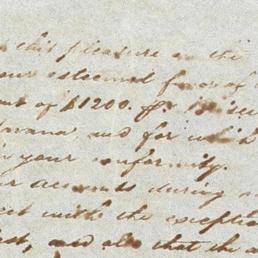 this pleasure on the
our esteemed favor of
of $1200.
Havana and for which
in your conformity.
accounts during
with the exceptio
and also that the a